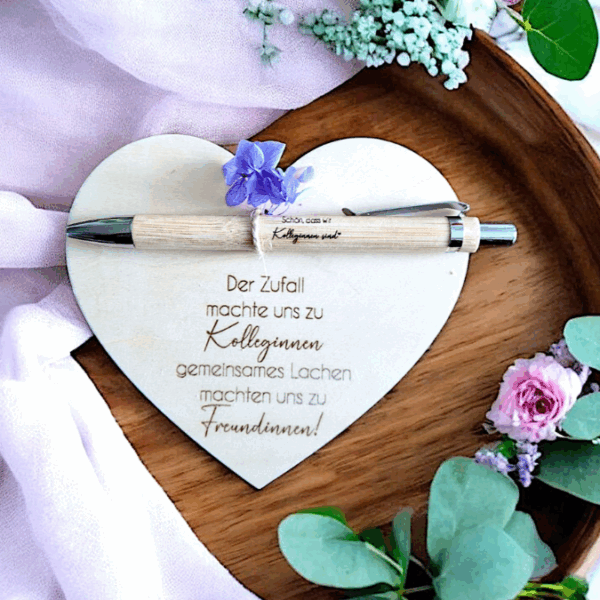 Schön, dass wir
Kolleginnen sind"
Der Zufall
machte uns zu
Kolleginnen
gemeinsames Lachen
machten uns zu
Freundinnen!